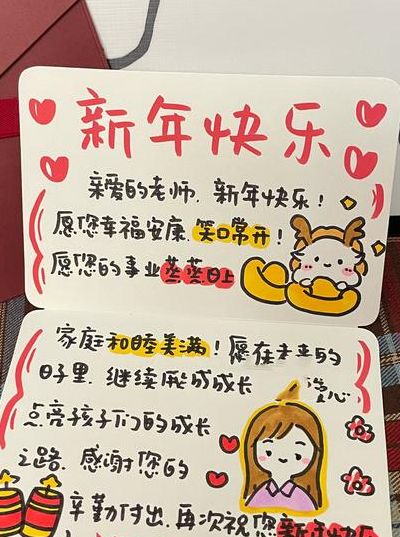 新年快乐
亲爱的老师，新年快乐！
愿您幸福安康，笑口常开！
愿您的事业蒸蒸日上
家庭和睦美满！愿在未来的
日子里，继续用成长
爱心
点亮孩子们的成长
之路，感谢您的
辛勤付出，再次祝您新年快乐